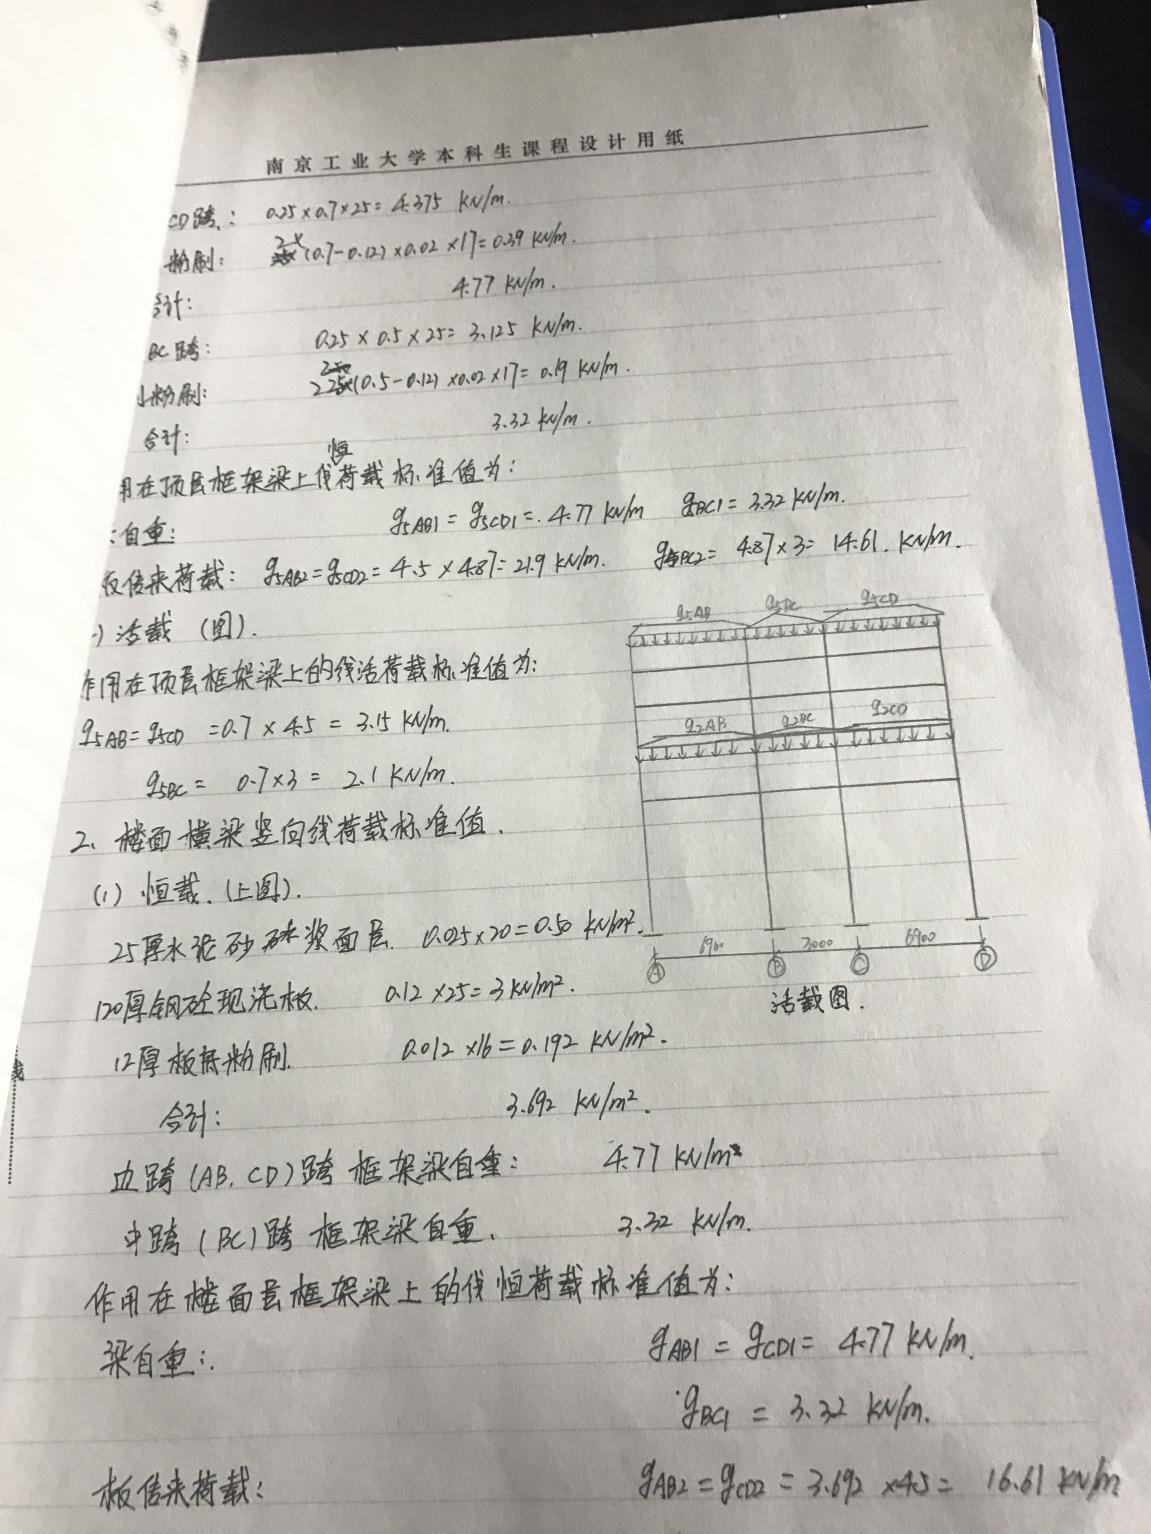 南京工业大学本科生课程设计用纸
CD跨: 0.25×0.7×25=4.375 KN/m.
粉刷: 2×(0.7-0.12)×0.02×17=0.39 KN/m.
合计: 4.77 KN/m.
BC跨: 0.25×0.5×25=3.125 KN/m.
粉刷: 2×(0.5-0.12)×0.02×17=0.19 KN/m.
合计: 3.32 KN/m.
用在顶层框架梁上线恒荷载标准值为:
自重: g5AB1=g5CD1=4.77 KN/m gBC1=3.32 KN/m.
板传来荷载: g5AB2=g5CD2=4.5×4.87=21.9 KN/m. g5BC2=4.87×3=14.61 KN/m.
) 活载 (图).
作用在顶层框架梁上的线活荷载标准值为:
q5AB=q5CD=0.7×4.5=3.15 KN/m.
q5BC=0.7×3=2.1 KN/m.
q5AB q5BC q5CD
q2AB q2BC q2CD
6900 3000 6900
A B C D
活载图.
2、楼面横梁竖向线荷载标准值.
(1) 恒载.(上图).
25厚水泥砂浆面层. 0.025×20=0.50 KN/m².
120厚钢砼现浇板. 0.12×25=3KN/m².
12厚板底粉刷. 0.012×16=0.192 KN/m².
合计: 3.692 KN/m².
边跨(AB,CD)跨框架梁自重: 4.77 KN/m²
中跨(BC)跨框架梁自重. 3.32 KN/m.
作用在楼面层框架梁上的线恒荷载标准值为:
梁自重: gAB1=gCD1=4.77 KN/m.
gBC1=3.32 KN/m.
板传来荷载: gAB2=gCD2=3.692×4.5=16.61 KN/m